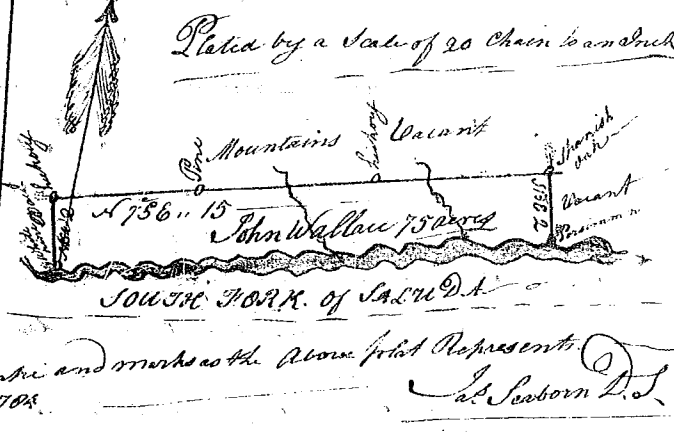 Plated by a Scale of 20 Chain to an Inch
Mountains Vacant
Pine
Spanish
Oak
N 75 E .. 15
John Wallace 75 acres
Vacant
Persimmon
SOUTH FORK. of SALUDA
and marks as the Above plat Represents
1784
Jas Seaborn D. S.